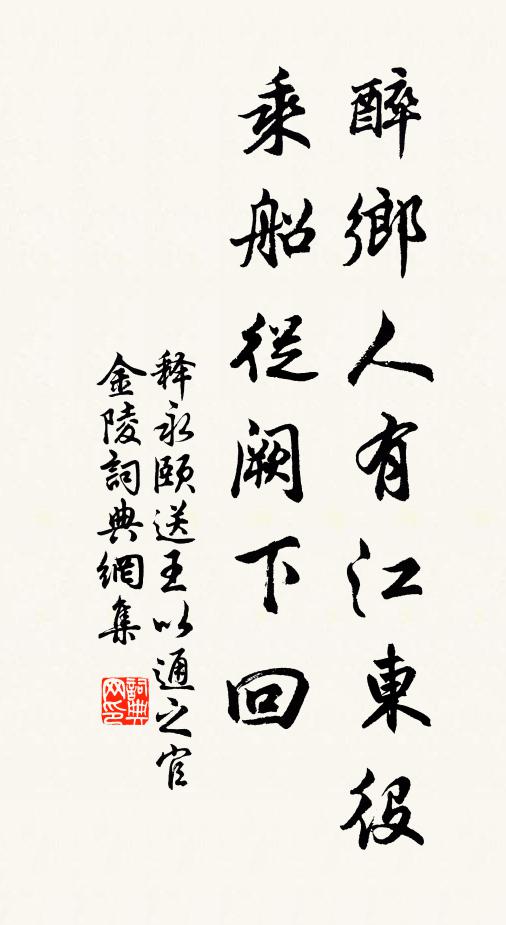 醉鄉人有江東役
乘船從闕下回
释永颐送王以通之官
金陵詞典網集
詞典网印